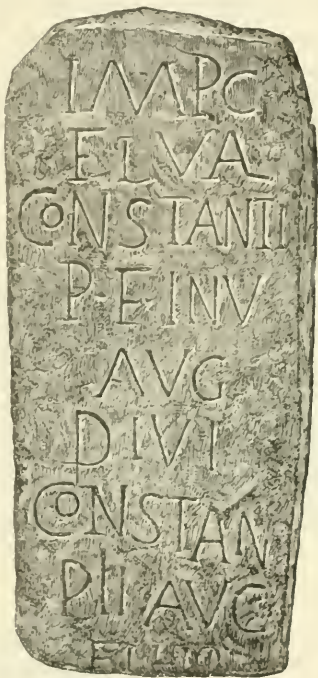 IMPC
FLVA
CONSTANTI
P·F·INV
AVG
DIVI
CONSTAN
PII AVC
FILIO